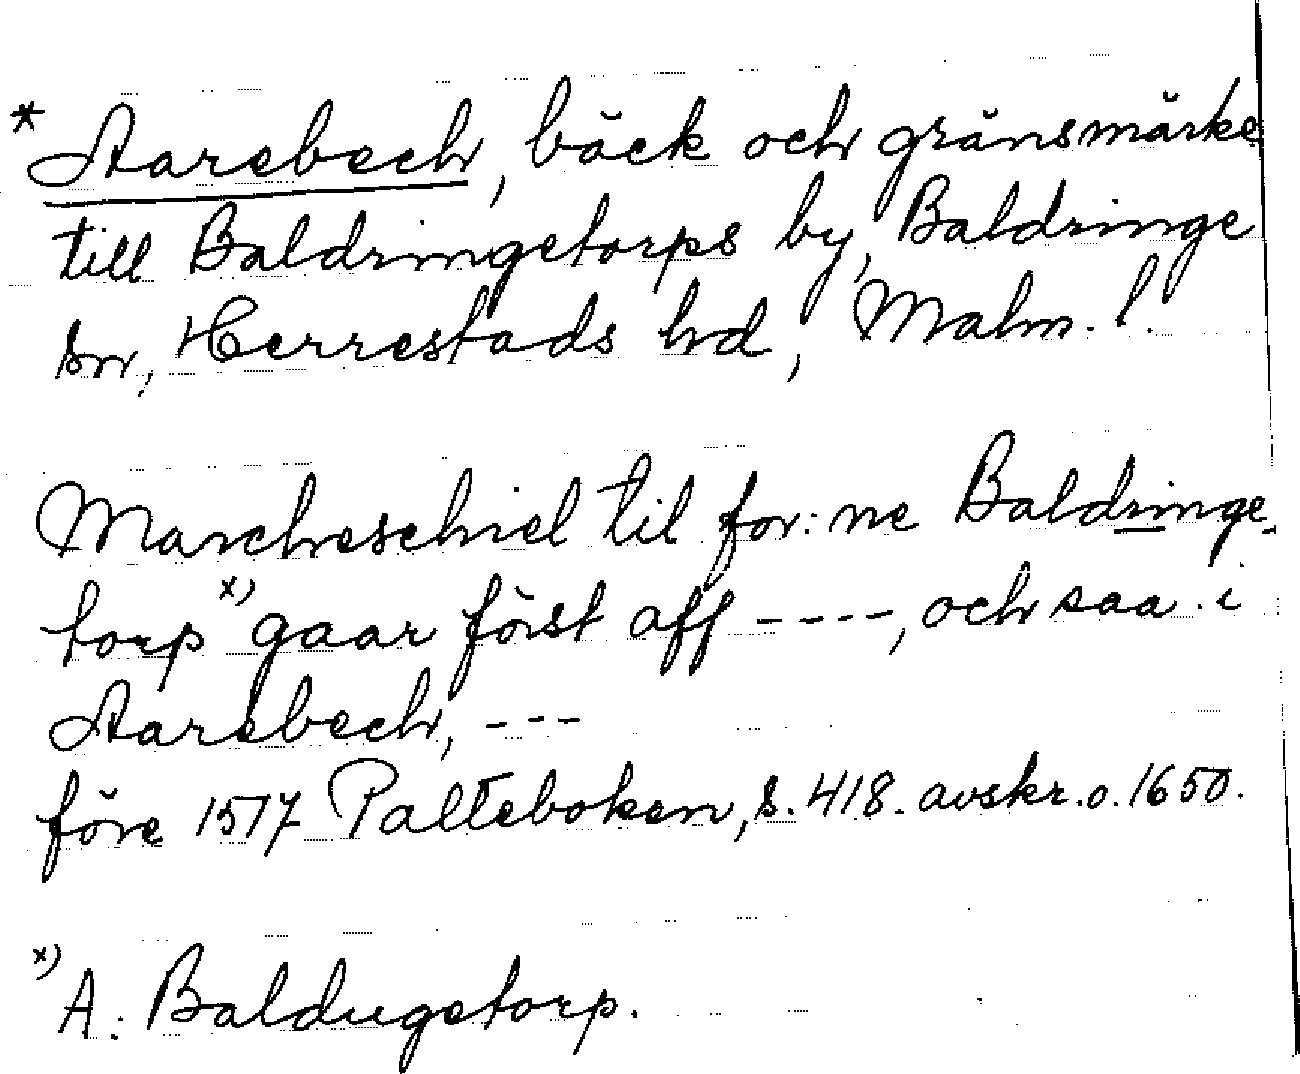 * Aarebech, bäck och gränsmärke
till Baldringetorps by, Baldringe
sn, Herrestads hd, Malm. l.
Marcheschiel til for: ne Baldringe-
torp x) gaar först aff ----, och saa i
Aarebech, ---
före 1517 Palteboken, s. 418. avskr. o. 1650.
x) A: Baldugetorp.